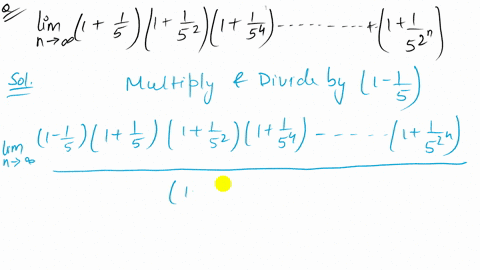 Q. lim n→∞ (1 + 1/5)(1 + 1/5^2)(1 + 1/5^4) --------- + (1 + 1/5^{2^n})
Sol. Multiply & Divide by (1 - 1/5)
lim n→∞ (1 - 1/5)(1 + 1/5)(1 + 1/5^2)(1 + 1/5^4) ------ (1 + 1/5^{2^n})
(1